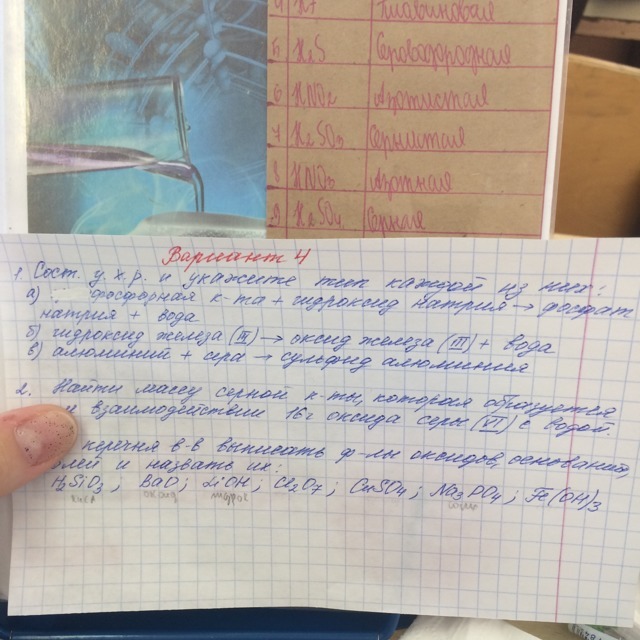 4 HF Плавиковая
5 H₂S Сероводородная
6 HNO₂ Азотистая
7 H₂SO₃ Сернистая
8 HNO₃ Азотная
9 H₂SO₄ Серная
Вариант 4
1. Сост. у.х.р. и укажите тип каждой из них:
а) фосфорная к-та + гидроксид натрия → фосфат
натрия + вода
б) гидроксид железа (III) → оксид железа (III) + вода
в) алюминий + сера → сульфид алюминия
2. Найти массу серной к-ты, которая образуется
взаимодействии 16г оксида серы (VI) с водой.
перечня в-в выписать ф-лы оксидов, оснований,
и назвать их:
H₂SiO₃; BaO; LiOH; Cl₂O₇; CuSO₄; Na₃PO₄; Fe(OH)₃
оксид соли